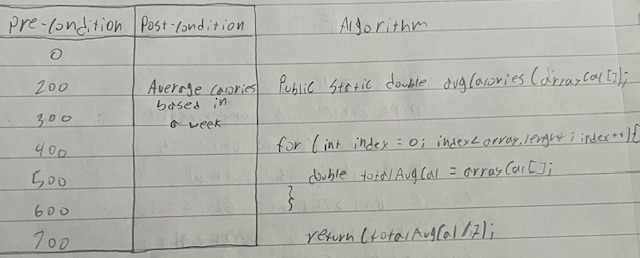 Pre-condition Post-condition Algorithm
0
200 Average calories Public static double avgCalories (arrayCal[]);
300 based in
a week
400 for (int index = 0; index < array.lenght; index++){
500 double totalAvgCal = arrayCal[];
600 }
700 return (totalAvgCal/7);